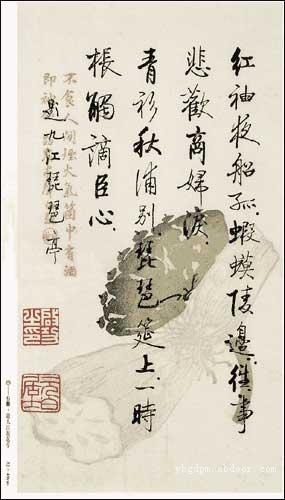 紅袖夜船孤蝦蟆陵邊往事
悲歡商婦淚
青衫秋浦別琵琶筵上一時
棖觸謫臣心
題九江琵琶亭
不食人間煙火氣箇中有酒
即神
yhgdpm.abdoor.com